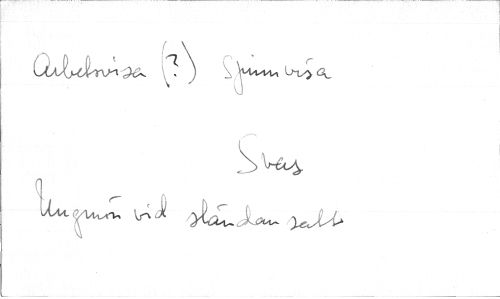 Arbetsvisa (?) Spinnvisa
Sveas
Ungmön vid sländan satt